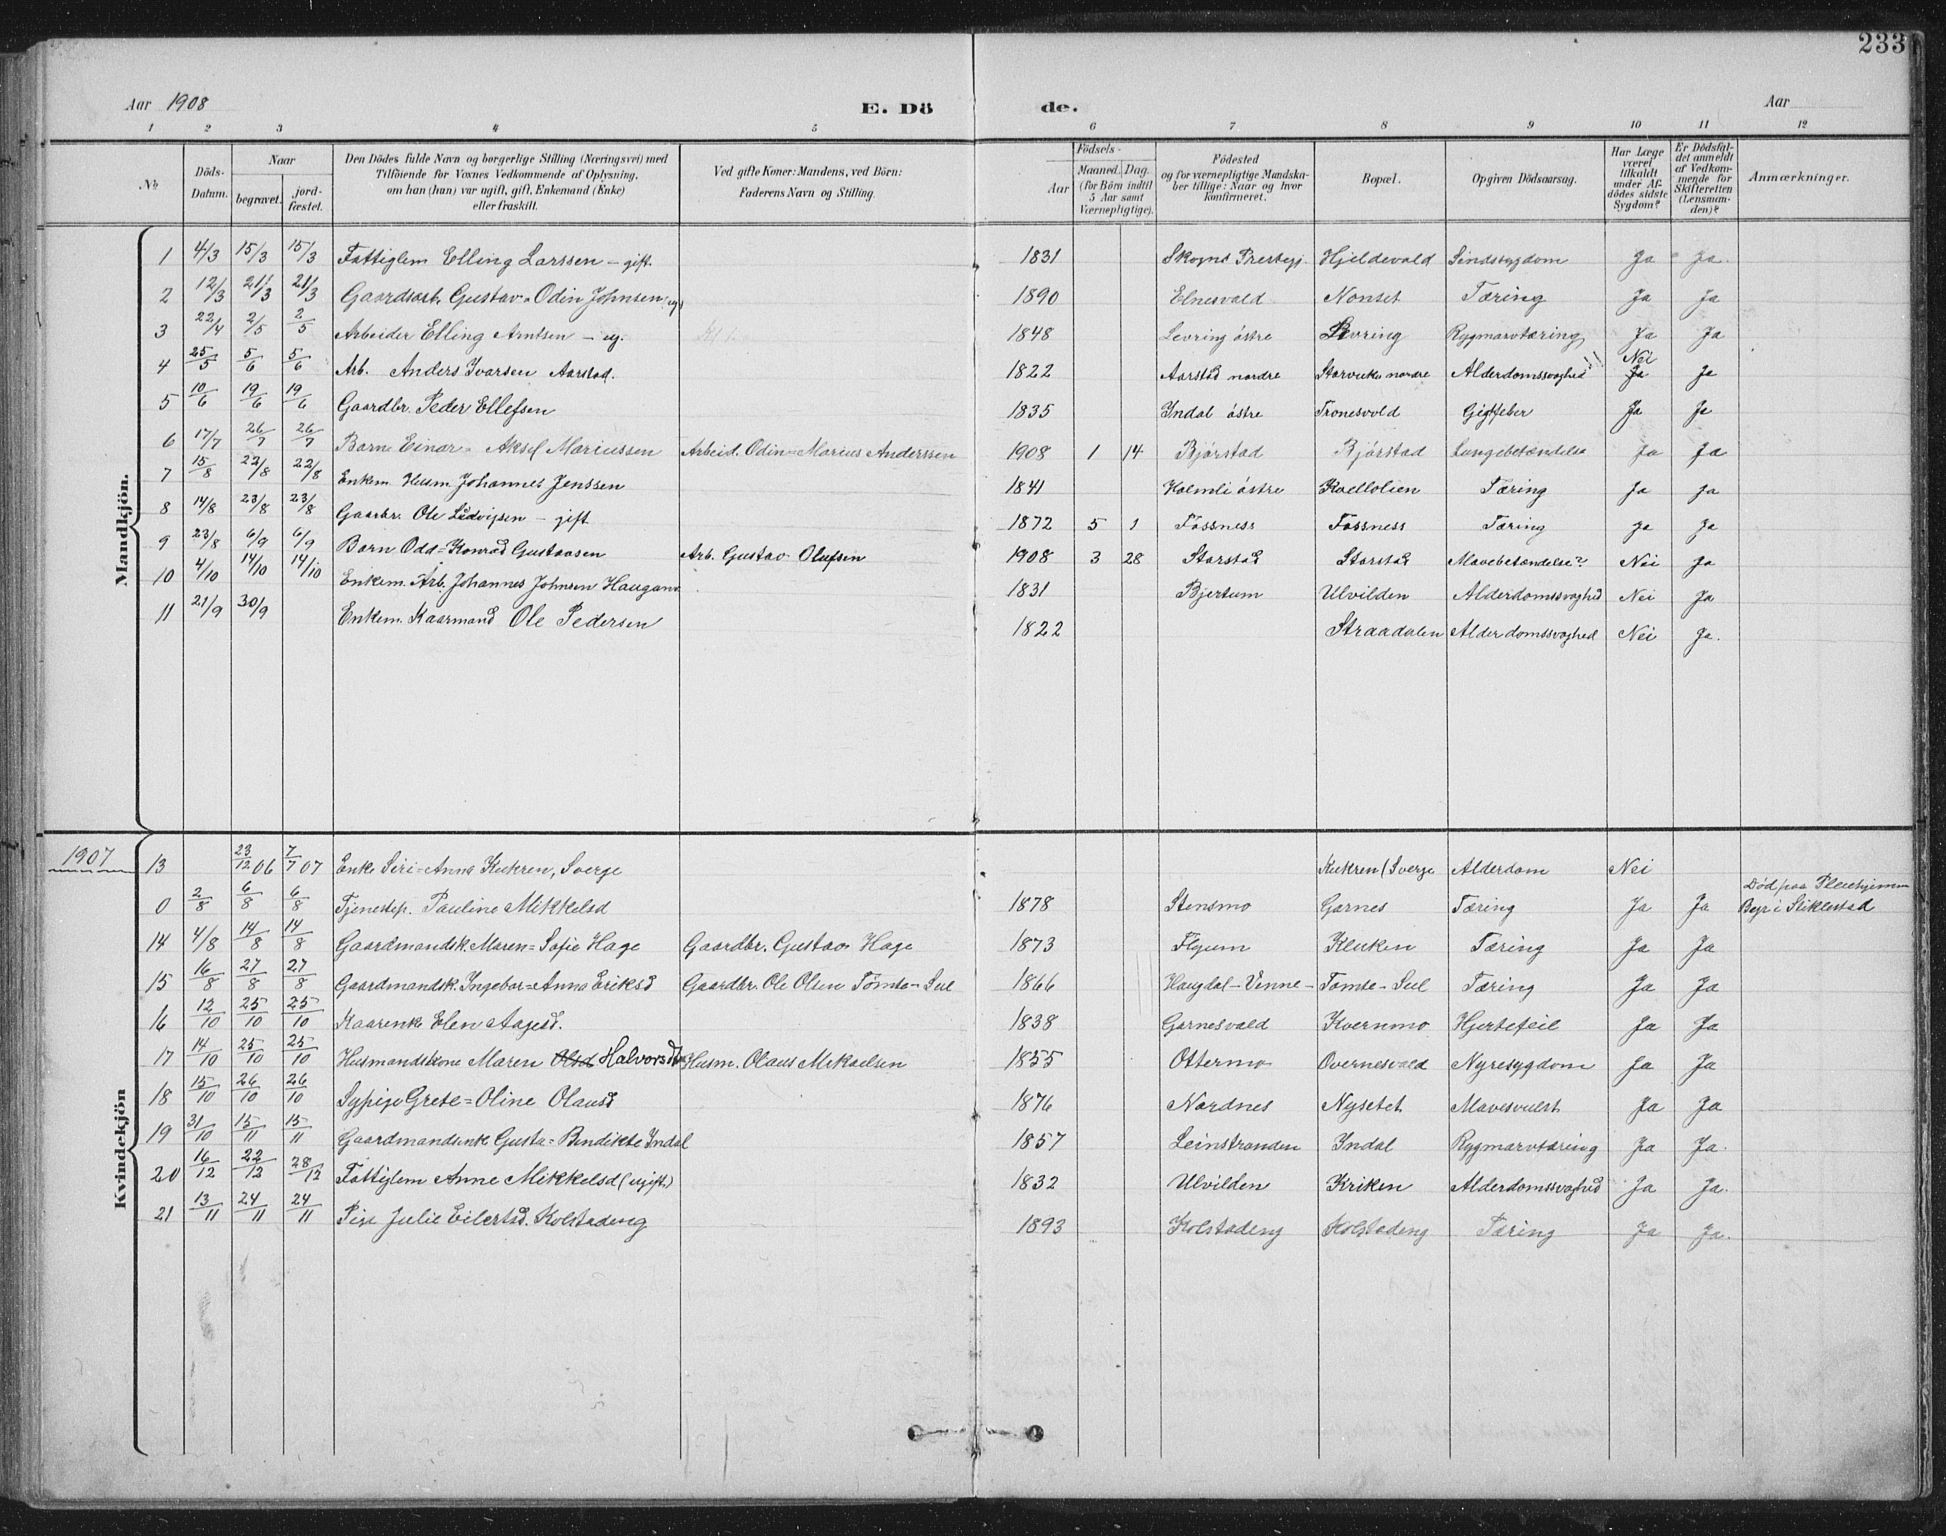 233
Aar 1908 E. Dö de. Aar
1 2 3 4 5 6 7 8 9 10 11 12
No. Döds-Datum. Naar begravet. jord-fæstet. Den Dödes fulde Navn og borgerlige Stilling (Næringsvei) med Tilföiende for Voxnes Vedkommende af Oplysning, om han (hun) var ugift, gift, Enkemand (Enke) eller fraskilt. Ved gifte Koner: Mandens, ved Börn: Faderens Navn og Stilling. Födsels- Aar Maaned. Dag. (for Börn indtil 5 Aar samt Værnepligtige). Födested og for værnepligtige Mandska-ber tillige: Naar og hvor konfirmeret. Bopæl. Opgiven Dödsaarsag. Har Læge været tilkaldt under Af-dödes sidste Sygdom? Er Dödsfal-det anmeldt af Vedkom-mende for Skifteretten (Lensman-den)? Anmærkninger.
Mandkjön.
1 4/3 15/3 15/3 Fattiglem Elling Larssen - gift. 1831 Skogns Prestegj. Hjeldevald Sindssygdom Ja Ja.
2 12/3 21/3 21/3 Gaardsarb. Gustav-Odin Johnsen, ug 1890 Elnesvald Nonset Tæring Ja Ja
3 22/4 2/5 2/5 Arbeider Elling Arntsen - ug. 1848 Levring östre Levring Rygmarvtæring Ja Ja
4 25/5 5/6 5/6 Arb. Anders Ivarsen Aarstad. 1822 Aarstad nordre Storvuku nordre Alderdomssvaghed Nei Ja Ja
5 10/6 19/6 19/6 Gaardbr. Peder Ellefsen 1835 Yndal östre Tronesvold Gigtfeber Ja Ja
6 17/7 26/7 26/7 Barn Einar-Aksel Mariussen Arbeid. Odin-Marius Anderssen 1908 1 14 Bjørstad Bjørstad Lungebetændelse Ja Ja
7 15/8 22/8 22/8 Enkem. Husm. Johannes Jenssen 1841 Holmli östre Kvellolien Tæring Ja Ja
8 14/8 23/8 23/8 Gaarbr. Ole Ludvigsen - gift 1872 5 1 Fossness Fossness Tæring Ja Ja
9 23/8 6/9 6/9 Barn Odd=Konrad Gustavsen Arb. Gustav Olufsen 1908 3 28 Storstad Storstad Mavebetændelse? Nei Ja
10 4/10 14/10 14/10 Enkem. Arb. Johannes Johnsen Haugan 1831 Bjertum Ulvilden Alderdomssvaghed Nei Ja
11 21/9 30/9 Enkem. Kaarmand Ole Pedersen 1822 Straadalen Alderdomssvaghed Nei Ja.
Kvindekjön
1907 13 23/12 06 7/7 07 Enke Siri-Anna Kukren, Sverge Kukren (Sverge Alderdom Nei
0 2/8 6/8 6/8 Tjenestep. Pauline Mikkelsd 1878 Stensmo Garnes Tæring Ja Ja Død paa Pleiehjemmet Beyr i Stiklestad
14 4/8 14/8 14/8 Gaardmandsk. Maren=Sofie Hage Gaardbr. Gustav Hage 1873 Flyum Kluken Tæring Ja Ja
15 16/8 27/8 27/8 Gaardmandsk. Ingebor=Anna Eriksd Gaardbr. Ole Olsen Tømte-Sul 1866 Haugdal-Vinne- Tomte-Sul Tæring Ja Ja
16 12/10 25/10 25/10 Kaarenk. Elen Aagesd. 1838 Garnesvald Kvernmo Hjertefeil Ja Ja
17 14/10 25/10 25/10 Husmandskone Maren Olsd Halvorsd Husm. Olaus Mikaelsen 1855 Ottermo Overnesvald Nyresygdom Ja Ja
18 15/10 26/10 26/10 Sypige Grete=Oline Olausd 1876 Nordnes Nysetet Mavesvulst Ja Ja
19 31/10 15/11 15/11 Gaardmandsenk Gusta=Bendikte Yndal 1857 Leinstranden Yndal Rygmarvtæring Ja Ja.
20 16/12 22/12 28/12 Fattiglem Anne Mikkelsd (ugift.) 1832 Ulvilden Kriken Alderdomssvaghed Ja Ja.
21 13/11 24/11 24/11 Pige Julie Eilertsd. Kolstadeng 1893 Kolstadeng Kolstadeng Tæring Ja Ja.